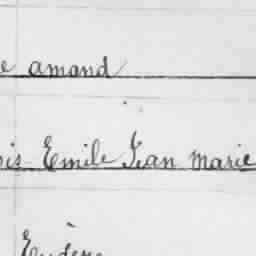 e amand
is Emile Jean marie
Eugène